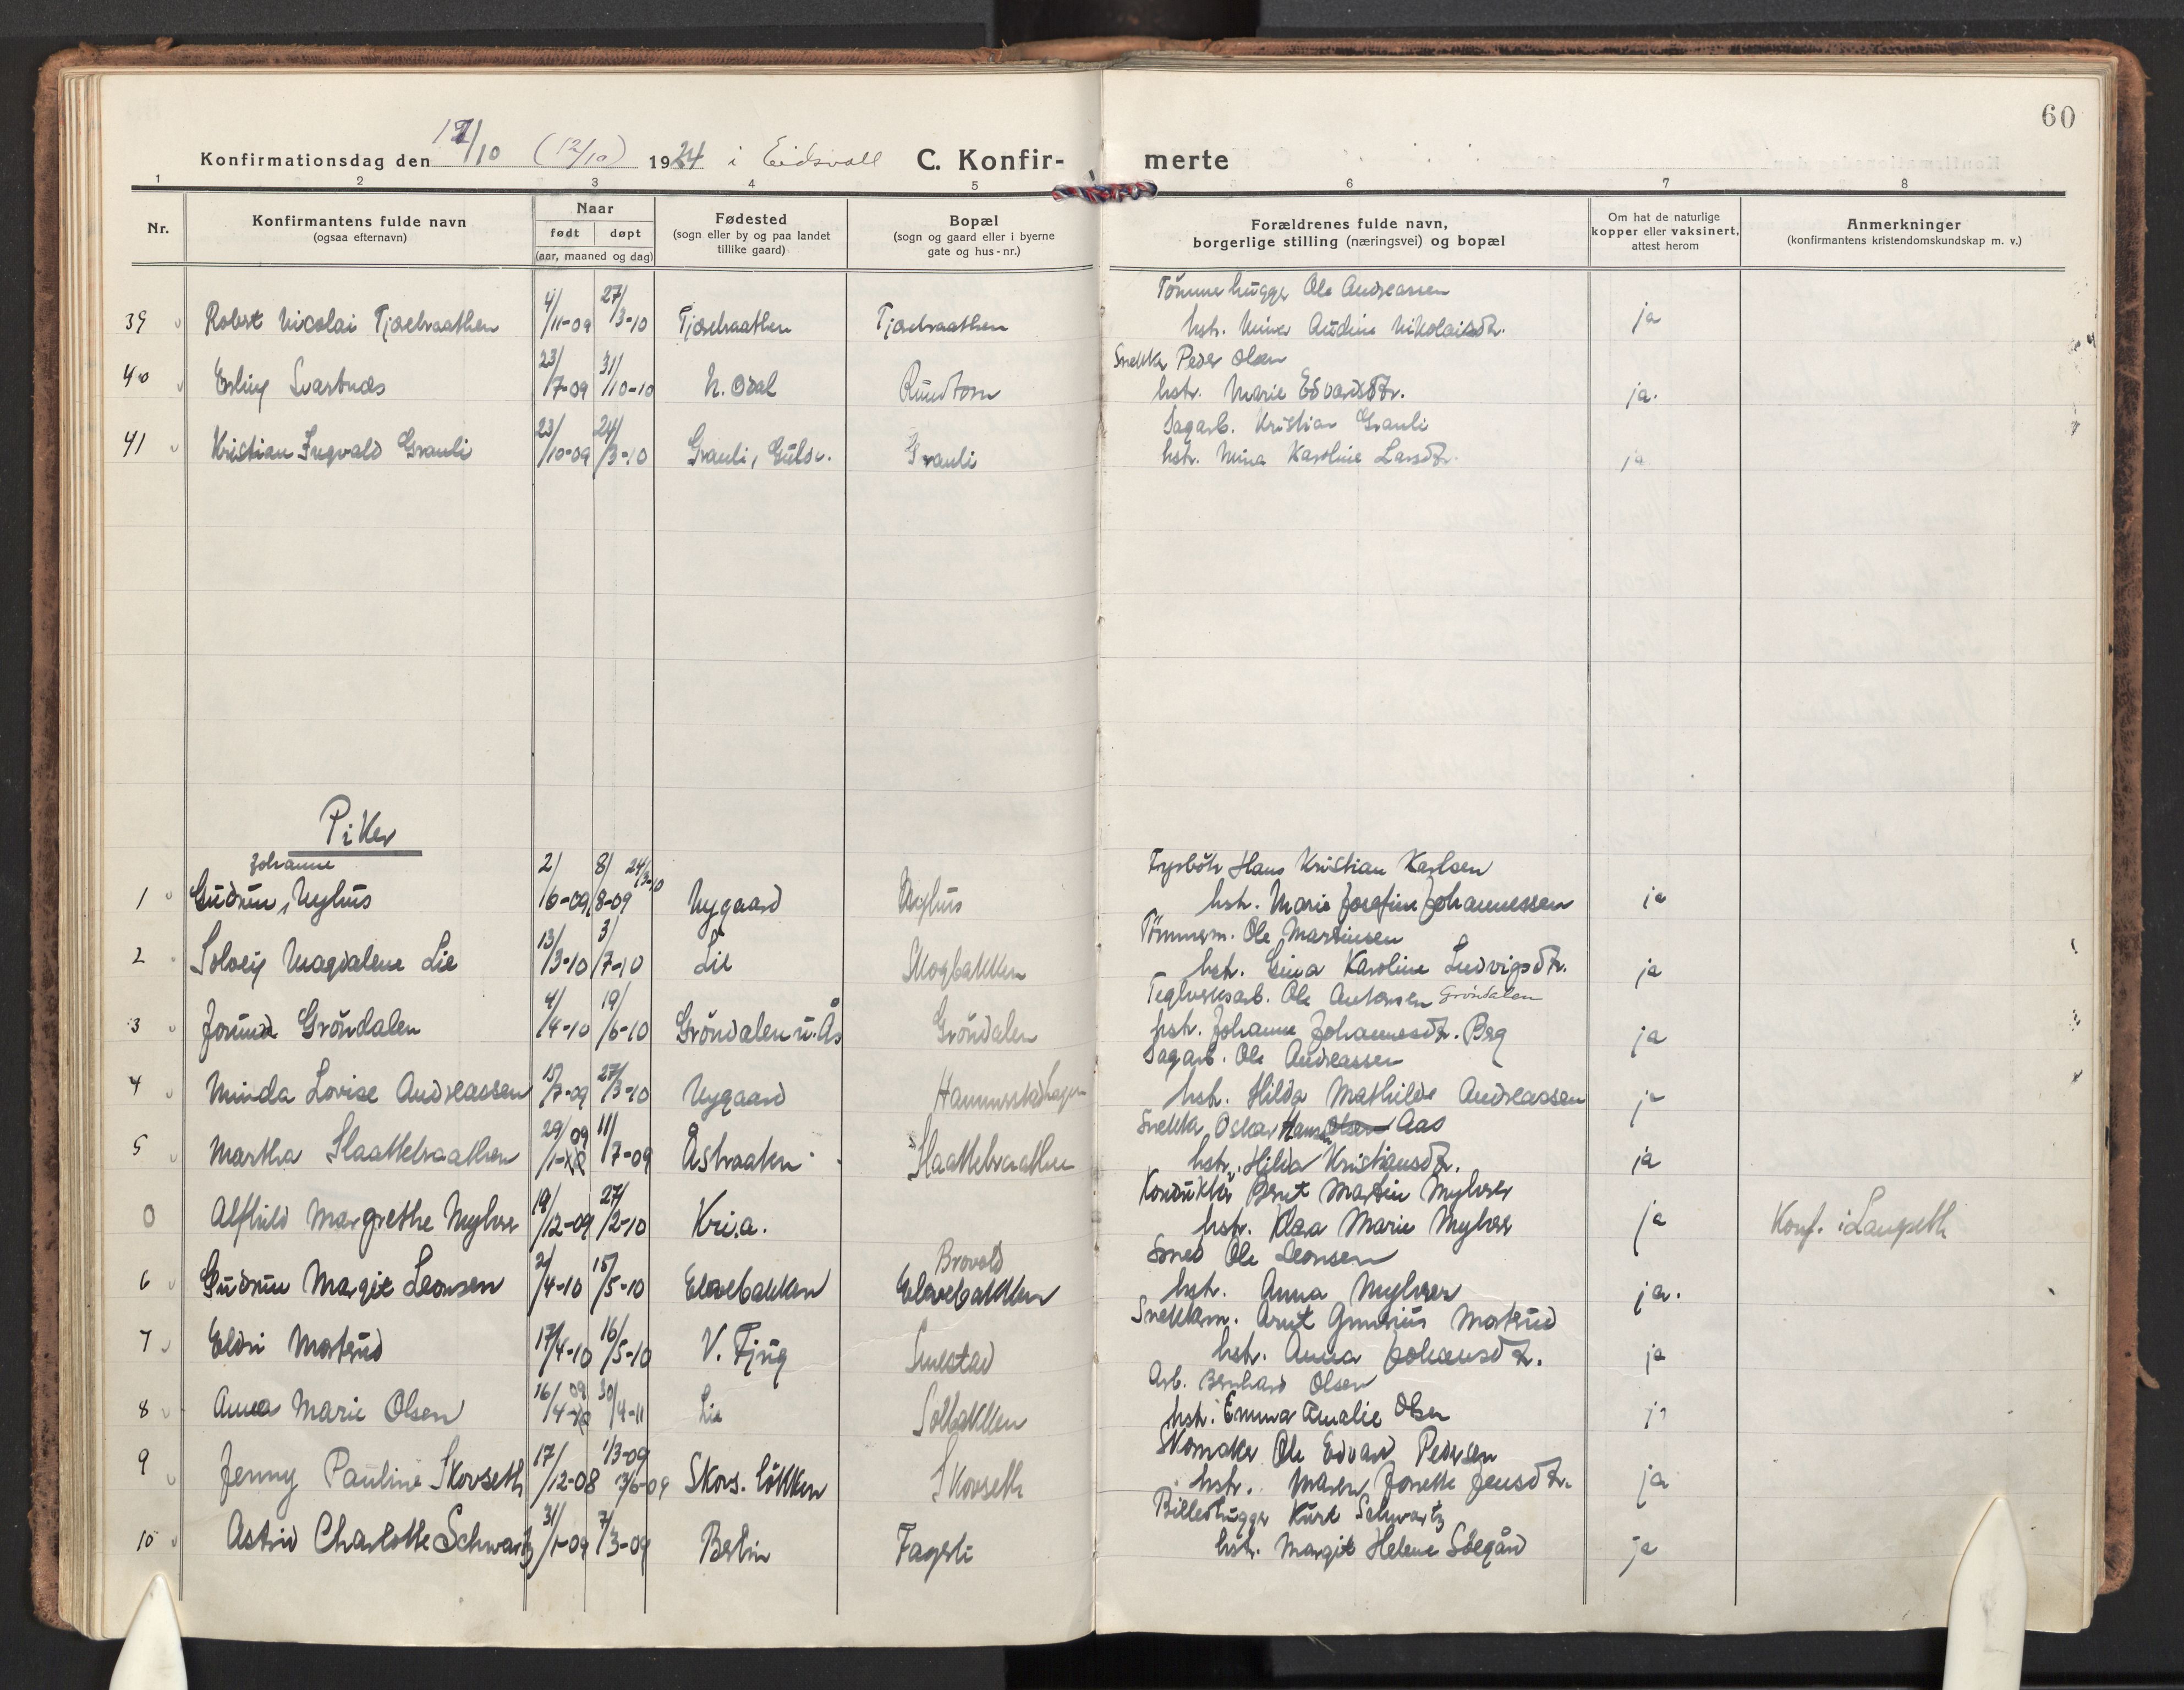 60
Konfirmationsdag den 12/10 (12/10) 1924 i Eidsvoll C. Konfir- merte
1 2 3 4 5 6 7 8
Nr.
Konfirmantens fulde navn
(ogsaa efternavn)
Naar
født døpt
(aar, maaned og dag)
Fødested
(sogn eller by og paa landet
tillike gaard)
Bopæl
(sogn og gaard eller i byerne
gate og hus-nr.)
Forældrenes fulde navn,
borgerlige stilling (næringsvei) og bopæl
Om hat de naturlige
kopper eller vaksinert,
attest herom
Anmerkninger
(konfirmantens kristendomskundskap m. v.)
Tømmerhugger Ole Andreassen
39 Robert Nicolai Tjælraathen 4/11-09 27/3-10 Tjælraathen Tjælraathen hstr. Audine Nikolaisdtr. ja
Snekker Peder Olsen
40 Erling Svartnæs 23/7-09 31/10-10 N. Odal Rundtom hstr. Marie Edvardsdtr. ja.
Sagarb. Kristian Grauli
41 Kristian Ingvald Grauli 23/10-09 24/3-10 Grauli, Guldv. Grauli hstr. Mina Karoline Larsdtr. ja
Piker
Johanne 24/3-10 Fyrbøter Hans Kristian Karlsen
1 Gudrun, Nyhus 2/6-09 8/8-09 Nygaard Nyhus hstr. Marie Josefine Johannessen ja
Tømmerm. Ole Martinsen
2 Solveig Magdalene Lie 13/3-10 3/7-10 Lie Skogbakken hstr. Gina Karoline Ludvigsdtr. ja
Teglverksarb. Ole Antonsen Grøndalen
3 Jorund Grøndalen 4/4-10 19/6-10 Grøndalen u. Ås Grøndalen hstr. Johanne Johannesdtr. Berg ja
Sagarb. Ole Andreassen
4 Minda Lovise Andreassen 15/7-09 27/3-10 Nygaard Hammerstadhagen hstr. Hilda Mathilde Andreassen ja
Snekker Oskar Hansen Olsen Aas
5 Martha Slaattebraathen 29/1-10 09 11/7-09 Åsbraaten Slaattebraathen hstr. Hilda Kristiansdtr. ja
Konduktør Bernt Martin Myhrer
0 Alfhild Margrethe Myhrer 19/12-09 27/2-10 Kr.i.a. hstr. Klara Marie Myhrer ja Konf. i Langseth
Brovold Smed Ole Leonsen
6 Gudrun Margit Leonsen 2/4-10 15/5-10 Elvebakken Elvebakken hstr. Anna Myhrer ja.
Snekkerm. Arnt Gunerius Mostrud
7 Eldri Mostrud 17/4-10 16/5-10 V. Fjug Smestad hstr. Anna Johansdtr. ja
Arb. Bernhard Olsen
8 Anna Marie Olsen 16/4-10 09 30/4-11 Lie Solbakken hstr. Emma Amalie Olsen ja
1/3-09 Skomaker Ole Edvard Pedersen
9 Jenny Pauline Skovseth 17/12-08 3/6-09 Skovs. løkken Skovseth hstr. Maren Jonette Jensdtr. ja
Billedhugger Kurt Schwartz
10 Astrid Charlotte Schwartz 31/1-09 7/3-09 Berlin Fagerli hstr. Margit Helene Søegård ja